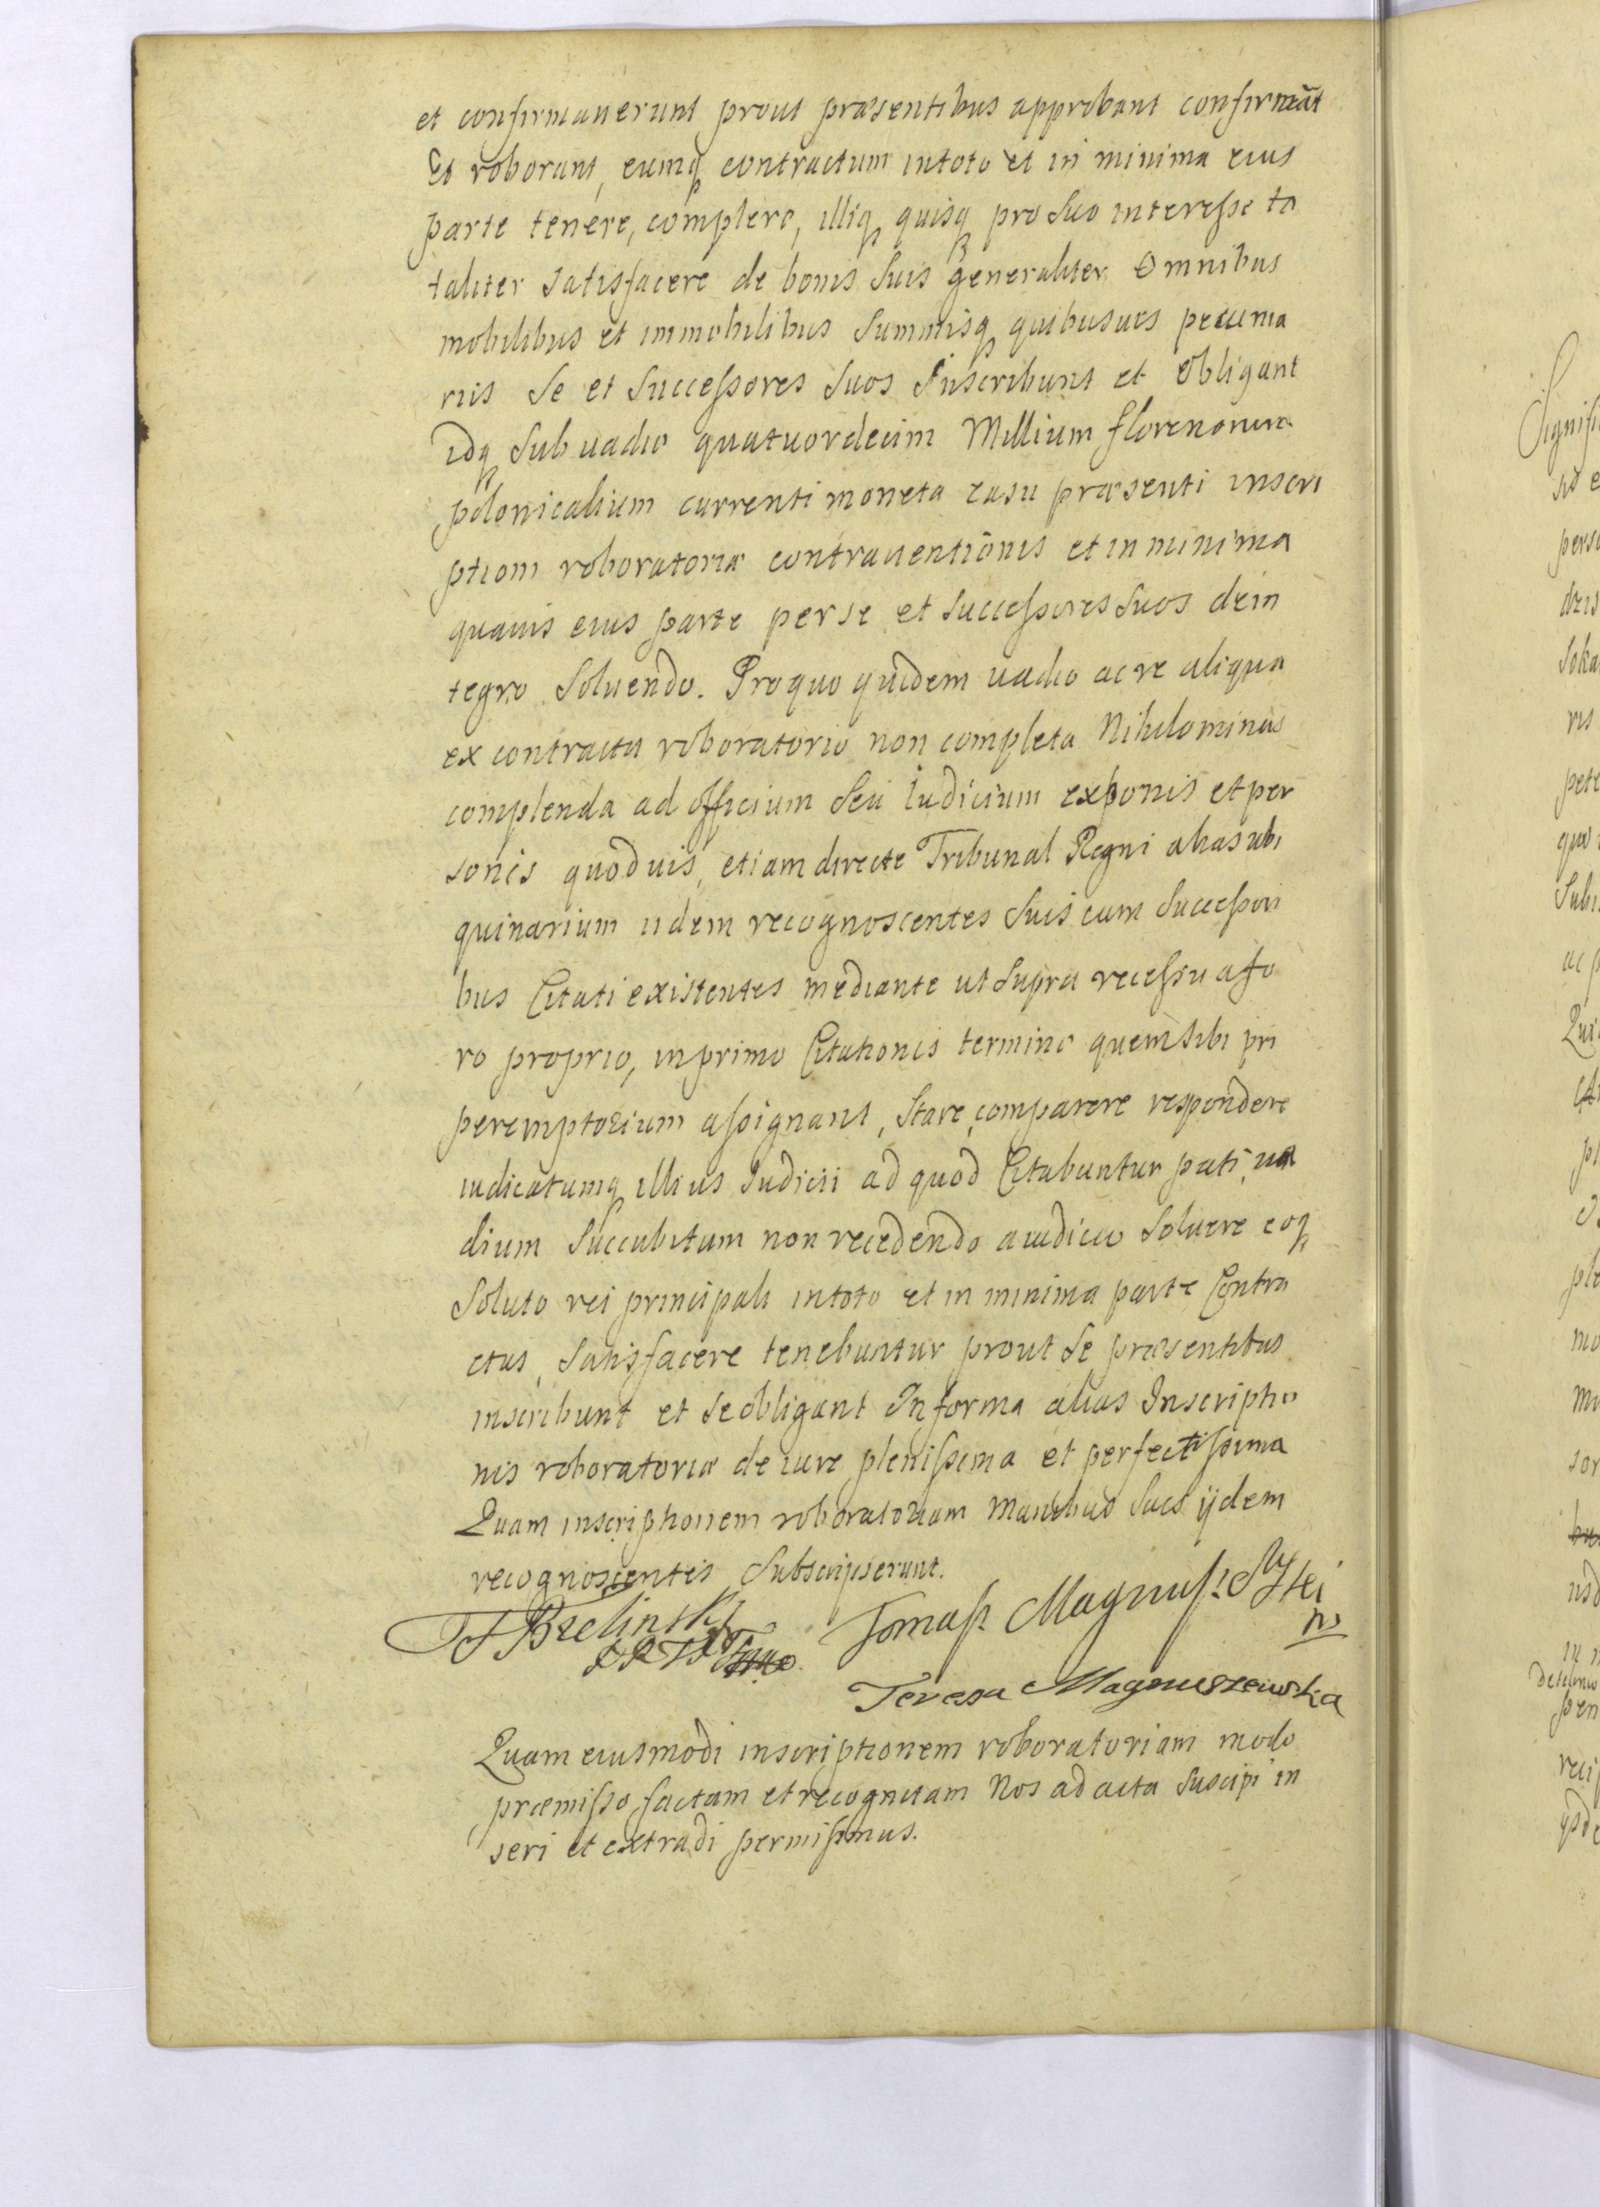 et confirmauerunt prout præsentibus approbant confirmāt
Et roborant, eumq contractum intoto et in minima eius
parte tenere, complere, illiq quisq pro suo interesse to
taliter satisfacere de bonis suis generaliter Omnibus
mobilibus et immobilibus summisq quibusuis pecunia
riis se et successores suos inscribunt et Obligant
idq sub uadio quatuordecim Millium florenorum
polonicalium currenti moneta casu præsenti inscri
ptioni roboratoriæ contrauentionis et in minima
quauis eius parte per se et successores suos dein
tegro soluendo. Pro quo quidem uadio ac re aliqua
ex contractu roboratorio non completa Nihilominus
complenda ad officium seu Iudicium exbonis et per
sonis quoduis, etiam directe Tribunal Regni alias ubi
quinarium iidem recognoscentes suis cum successori
bus Citati existentes mediante ut supra recessu a fo
ro proprio, in primo Citationis termino quem sibi pri
peremptorium assignant, stare, comparere respondere
iudicatumq illius Iudicii ad quod Citabuntur pati, ua
dium succubitum non recedendo a iudicio soluere eoq
soluto rei principali intoto et in minima parte Contra
ctus, satisfacere tenebuntur prout se præsentibus
inscribunt et se obligant In forma alias Inscriptio
nis roboratoriæ de iure plenissima et perfectissima
Quam inscriptionem roboratoriam manibus suis ijdem
recognoscentes subscripserunt.
Tomasz Magnus
Teresa Magnuszewska
Quam eiusmodi inscriptionem roboratoriam modo
præmisso factam et recognitam Nos ad acta suscipi in
seri et extradi permisimus.